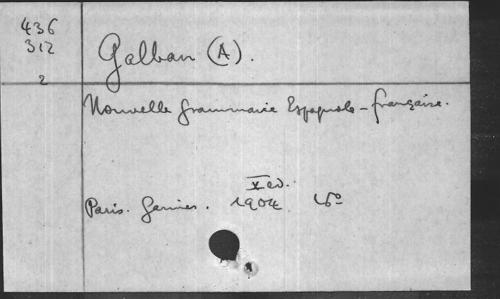 436
312
2
Galban (A).
Nouvelle grammaire Espagnole-française.
X ed.
Paris. Garnier. 1904 16º